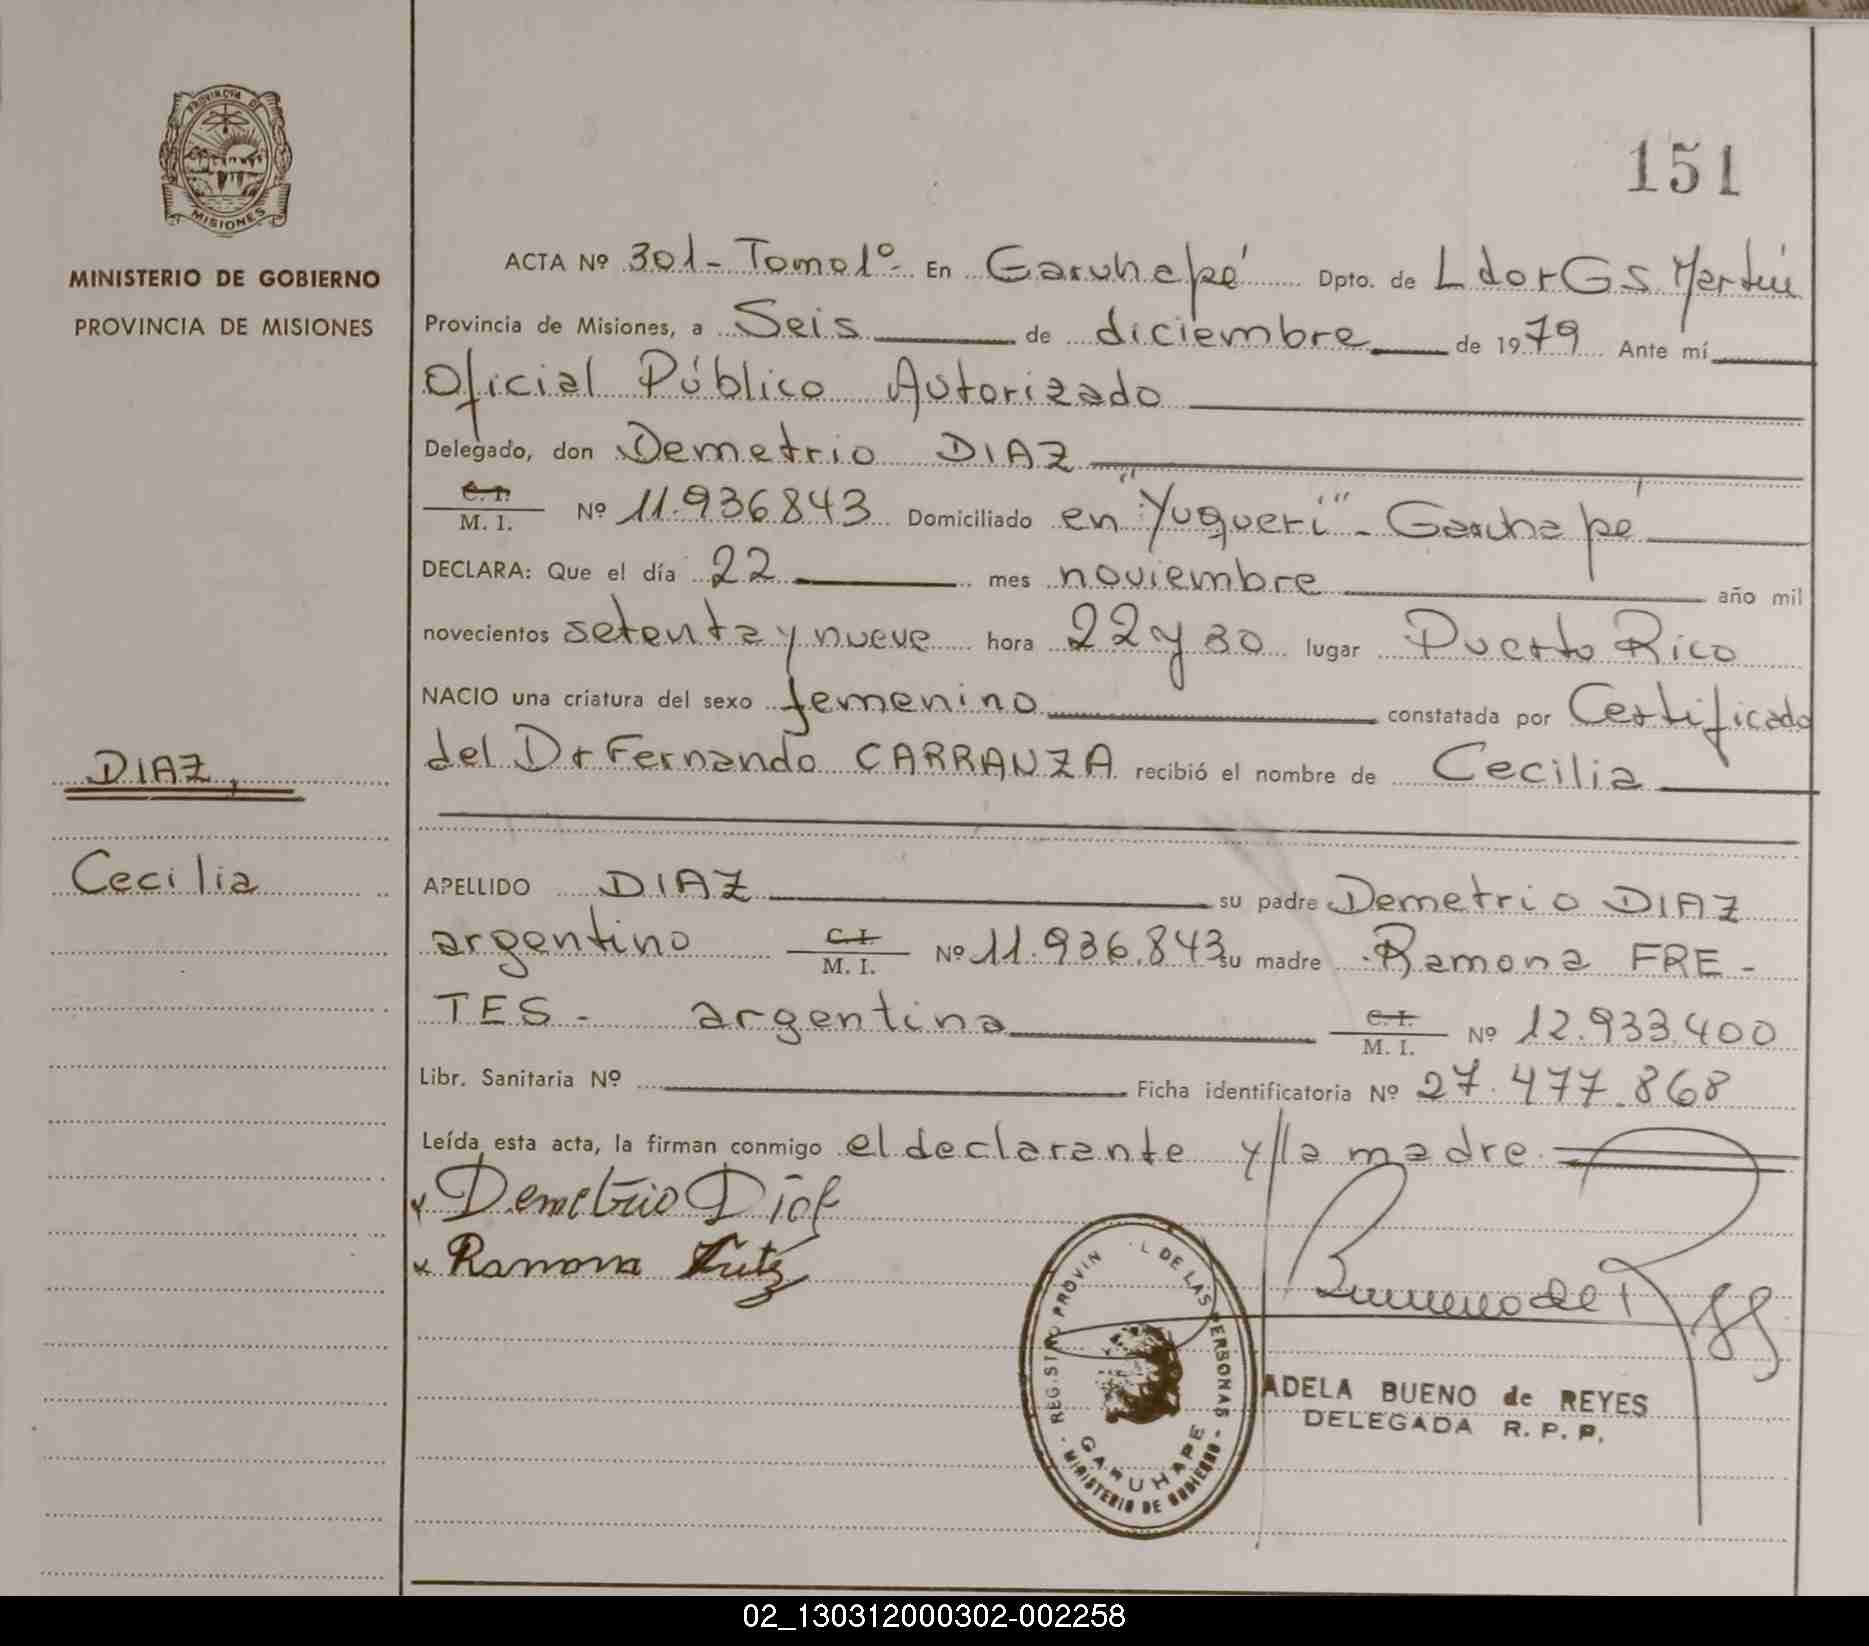 PROVINCIA DE
MISIONES
MINISTERIO DE GOBIERNO
PROVINCIA DE MISIONES
DIAZ,
Cecilia
151
ACTA Nº 301 - Tomo 1º - En Garuhapé Dpto. de Ldor G S Martín
Provincia de Misiones, a Seis de diciembre de 1979 Ante mí
Oficial Público Autorizado
Delegado, don Demetrio DIAZ
C. I.
M. I. Nº 11.936843 Domiciliado en "Yuquerí" - Garuhapé
DECLARA: Que el día 22 mes noviembre año mil
novecientos setenta y nueve hora 22 y 30 lugar Puerto Rico
NACIO una criatura del sexo femenino constatada por Certificado
del Dr Fernando CARRANZA recibió el nombre de Cecilia
APELLIDO DIAZ su padre Demetrio DIAZ
argentino C. I. M. I. Nº 11.936.843 su madre Ramona FRE-
TES - argentina C. I. M. I. Nº 12.933.400
Libr. Sanitaria Nº Ficha identificatoria Nº 27.477.868
Leída esta acta, la firman conmigo el declarante y//la madre
x Demetrio Diaz
x Ramona
Bueno de R
REGISTRO PROVIN L DE LAS PERSONAS
GARUHAPE
- MINISTERIO DE GOBIERNO -
ADELA BUENO de REYES
DELEGADA R. P. P.
02_130312000302-002258